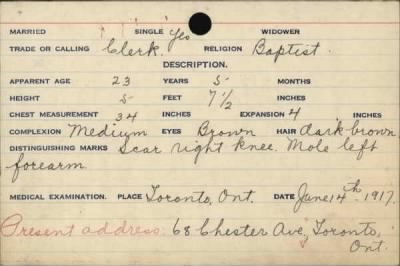 MARRIED SINGLE Yes WIDOWER
TRADE OR CALLING Clerk. RELIGION Baptist.
DESCRIPTION.
APPARENT AGE 23 YEARS 5 MONTHS
HEIGHT 5 FEET 7 1/2 INCHES
CHEST MEASUREMENT 34 INCHES EXPANSION 4 INCHES
COMPLEXION Medium EYES Brown HAIR dark brown
DISTINGUISHING MARKS Scar right knee. Mole left
forearm
MEDICAL EXAMINATION. PLACE Toronto, Ont. DATE June 14th 1917.
Present address. 68 Chester Ave, Toronto,
Ont.